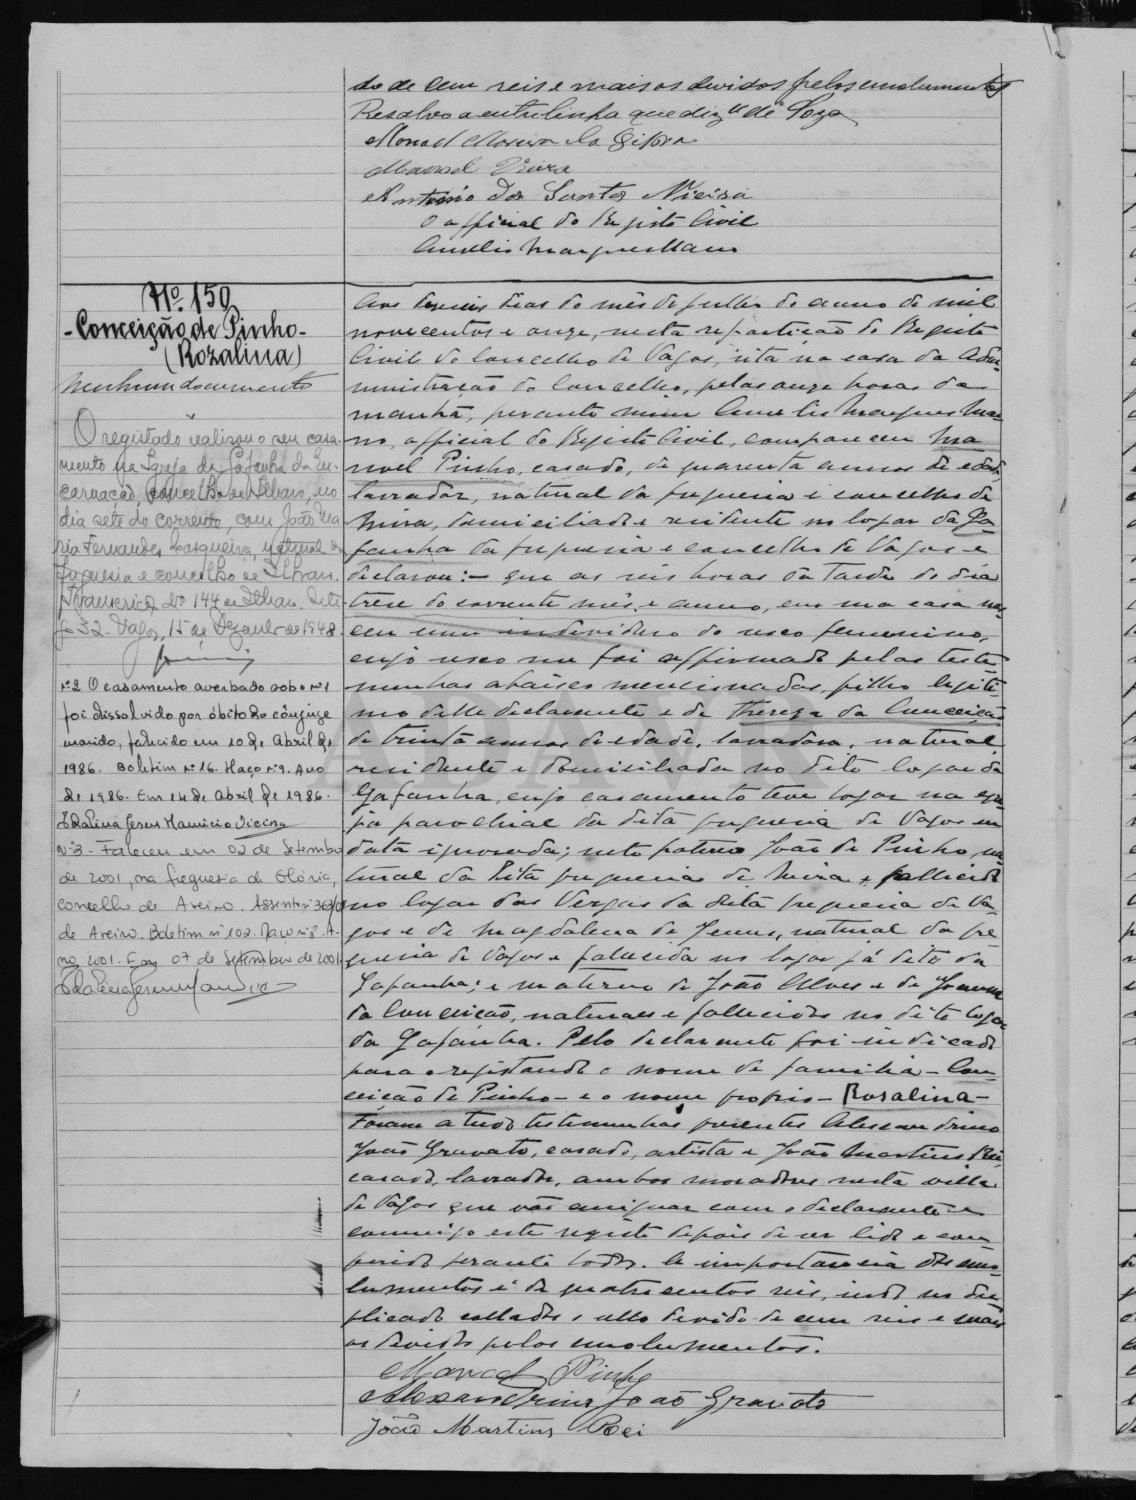 do de cem reis e mais os devidos pelos emolumentos
Resalvo a entrelinha que diz "de Soza
Manoel
Manoel Vieira
Antonio dos Santos Vieira
O official do Registo Civil
Aurelio Marques Mano
Nº. 150
-Conceição de Pinho-
(Rozalina)
Nenhum documento
O registado realisou o seu casa-
mento na Igreja da Gafanha da En-
carnação, concelho de Ilhavo, no
dia sete do corrente, com João Ma-
ria Fernandes Casqueira, natural da
freguesia e concelho de Ilhavo.
Nº 144 de Ilhavo.
fs 32. Vagos, 15 de Dezembro de 1948.
nº2 O casamento averbado sob o nº1
foi dissolvido por óbito do cônjuge
marido, falecido em 10 de Abril de
1986. Boletim nº 16. Maço nº9. Ano
de 1986. Em 14 de Abril de 1986.
Idalina Jesus Mauricio Vieira
nº3- Faleceu em 02 de Setembro
de 2001, na freguesia de Glória,
concelho de Aveiro. Assento nº 363/01
de Aveiro. Boletim nº 102. Maço nº8. A-
no 2001. Em 07 de Setembro de 2001.
Aos dezeseis dias do mês de julho do anno de mil
novecentos e onze, nesta repartição do Registo
Civil do Concelho de Vagos, sita na casa da Admi-
nistração do Concelho, pelas onze horas da
manhã, perante mim Aurelio Marques Ma-
no, official do Registo Civil, compareceu Ma-
noel Pinho, casado, de quarenta annos de edade,
lavrador, natural da freguesia e concelho de
Mira, domiciliado e residente no logar da Ga-
fanha da freguesia e concelho de Vagos e
declarou:- que as seis horas da tarde do dia
treze do corrente mês e anno, em sua casa nas-
ceu um individuo do sexo femenino,
cujo sexo me foi affirmado pelas teste-
munhas abaixo mencionadas, filho legiti-
mo delle declarante e de Thereza da Conceição
de trinta annos de edade, lavradora, natural,
residente e domiciliada no dito logar da
Gafanha, cujo casamento teve logar na egre-
ja parochial da dita freguesia de Vagos em
data ignorada; neto paterno João de Pinho, na-
tural da dita freguesia de Mira e fallecido
no logar das Vergas da dita freguesia de Va-
gos e de Magdalena de Jesus, natural da fre-
guesia de Vagos e falecida no logar já dito da
Gafanha; e materno de João Alves e de Joanna
da Conceição, naturaes e fallecidos no dito logar
da Gafanha. Pelo declarante foi indicado
para o registando o nome de familia - Con-
ceição de Pinho - e o nome proprio - Rosalina -
Foram a tudo testemunhas presentes Alexandrino
João Gravato, casado, artista e João Martins Rei,
casado, lavrador, ambos moradores nesta villa
de Vagos que vão assignar com o declarante e
commigo este registo depois de ser lido e con-
ferido perante todos. A importancia dos emo-
lumentos é de quatrocentos reis, indo no du-
plicado collado o sello devido de cem reis e mais
os devidos pelos emolumentos.
Manoel Pinho
Alexandrino João Gravato
João Martins Rei